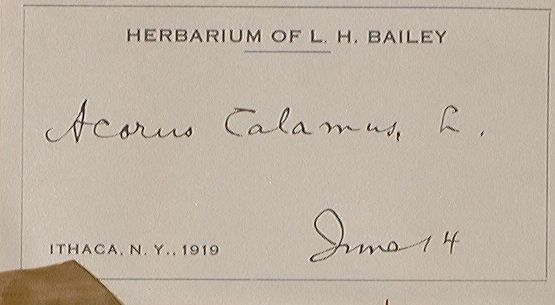 HERBARIUM OF L. H. BAILEY
Acorus Calamus, L.
ITHACA, N. Y., 1919 June 14